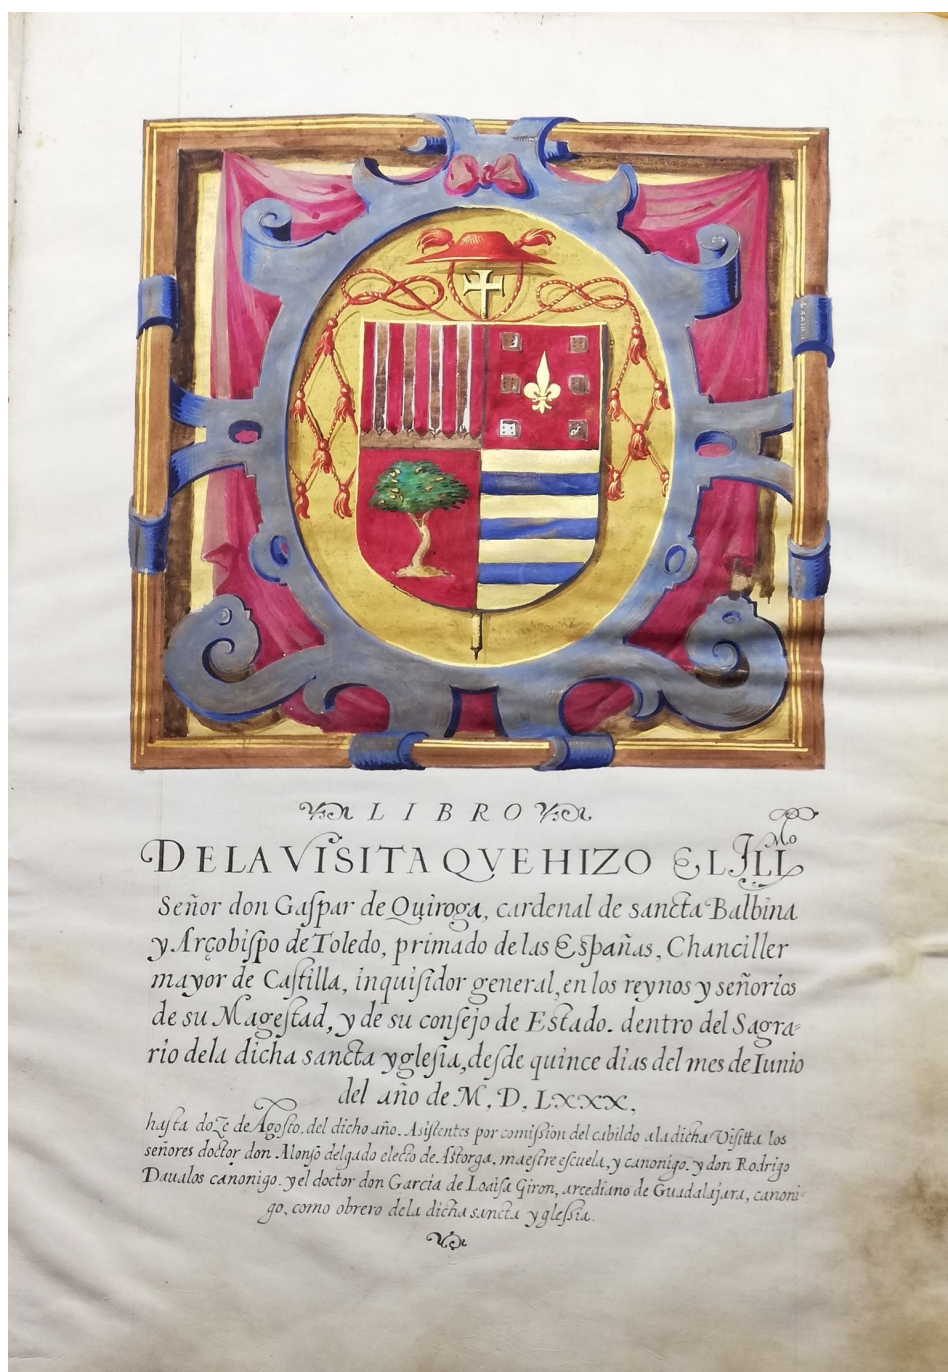 LIBRO
DE LA VISITA QVE HIZO EL JLLMo
Señor don Gaſpar de Quiroga, cardenal de sancta Balbina
y Arçobiſpo de Toledo, primado de las Eſpañas, Chanciller
mayor de Caſtilla, inquiſidor general, en los reynos y señorios
de su Mageſtad, y de su conſejo de Eſtado. dentro del Sagra=
rio dela dicha sancta ygleſia, deſde quince dias del mes de Iunio
del año de M. D. LXXX.
haſta doze de Agoſto. del dicho año. Asiſtentes por comiſsion del cabildo ala dicha Viſitta los
señores doctor don Alonſo delgado electo de Aſtorga. maeſtre eſcuela, y canonigo. y don Rodrigo
Daualos canonigo. y el doctor don Garcia de Loaiſa Giron, arcediano de Guadalajara, canoni-
go. como obrero dela dicha sancta ygleſsia.